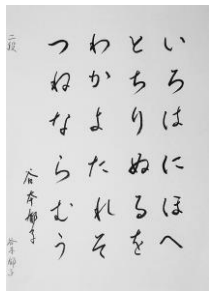 いろはにほへ
とちりぬるを
わかよたれそ
つねならむう
二段
谷本